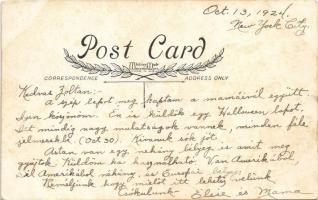 Oct. 13, 1924.
New York City.
Post Card
CORRESPONDENCE ADDRESS ONLY
Kedves Zoltán:-
A szép lapot meg kaptam a mamáénál együtt.
Ilyen köszönöm. Én is küldök egy Halloween lapot.
Itt mindig nagy mulatságok vannak, minden féle
jelmezekből. (Oct 30). Kivánok sok jót.
Aztan van egy néhány bélyeg is amit meg
gyüjtök. Küldöm ha használható. Van Amerikából
Dél Amerikából néhány, és Európai bélyeg.
Reméljünk hogy mielőtt itt lehetsz nálunk
Csókolunk Elsie és Mama